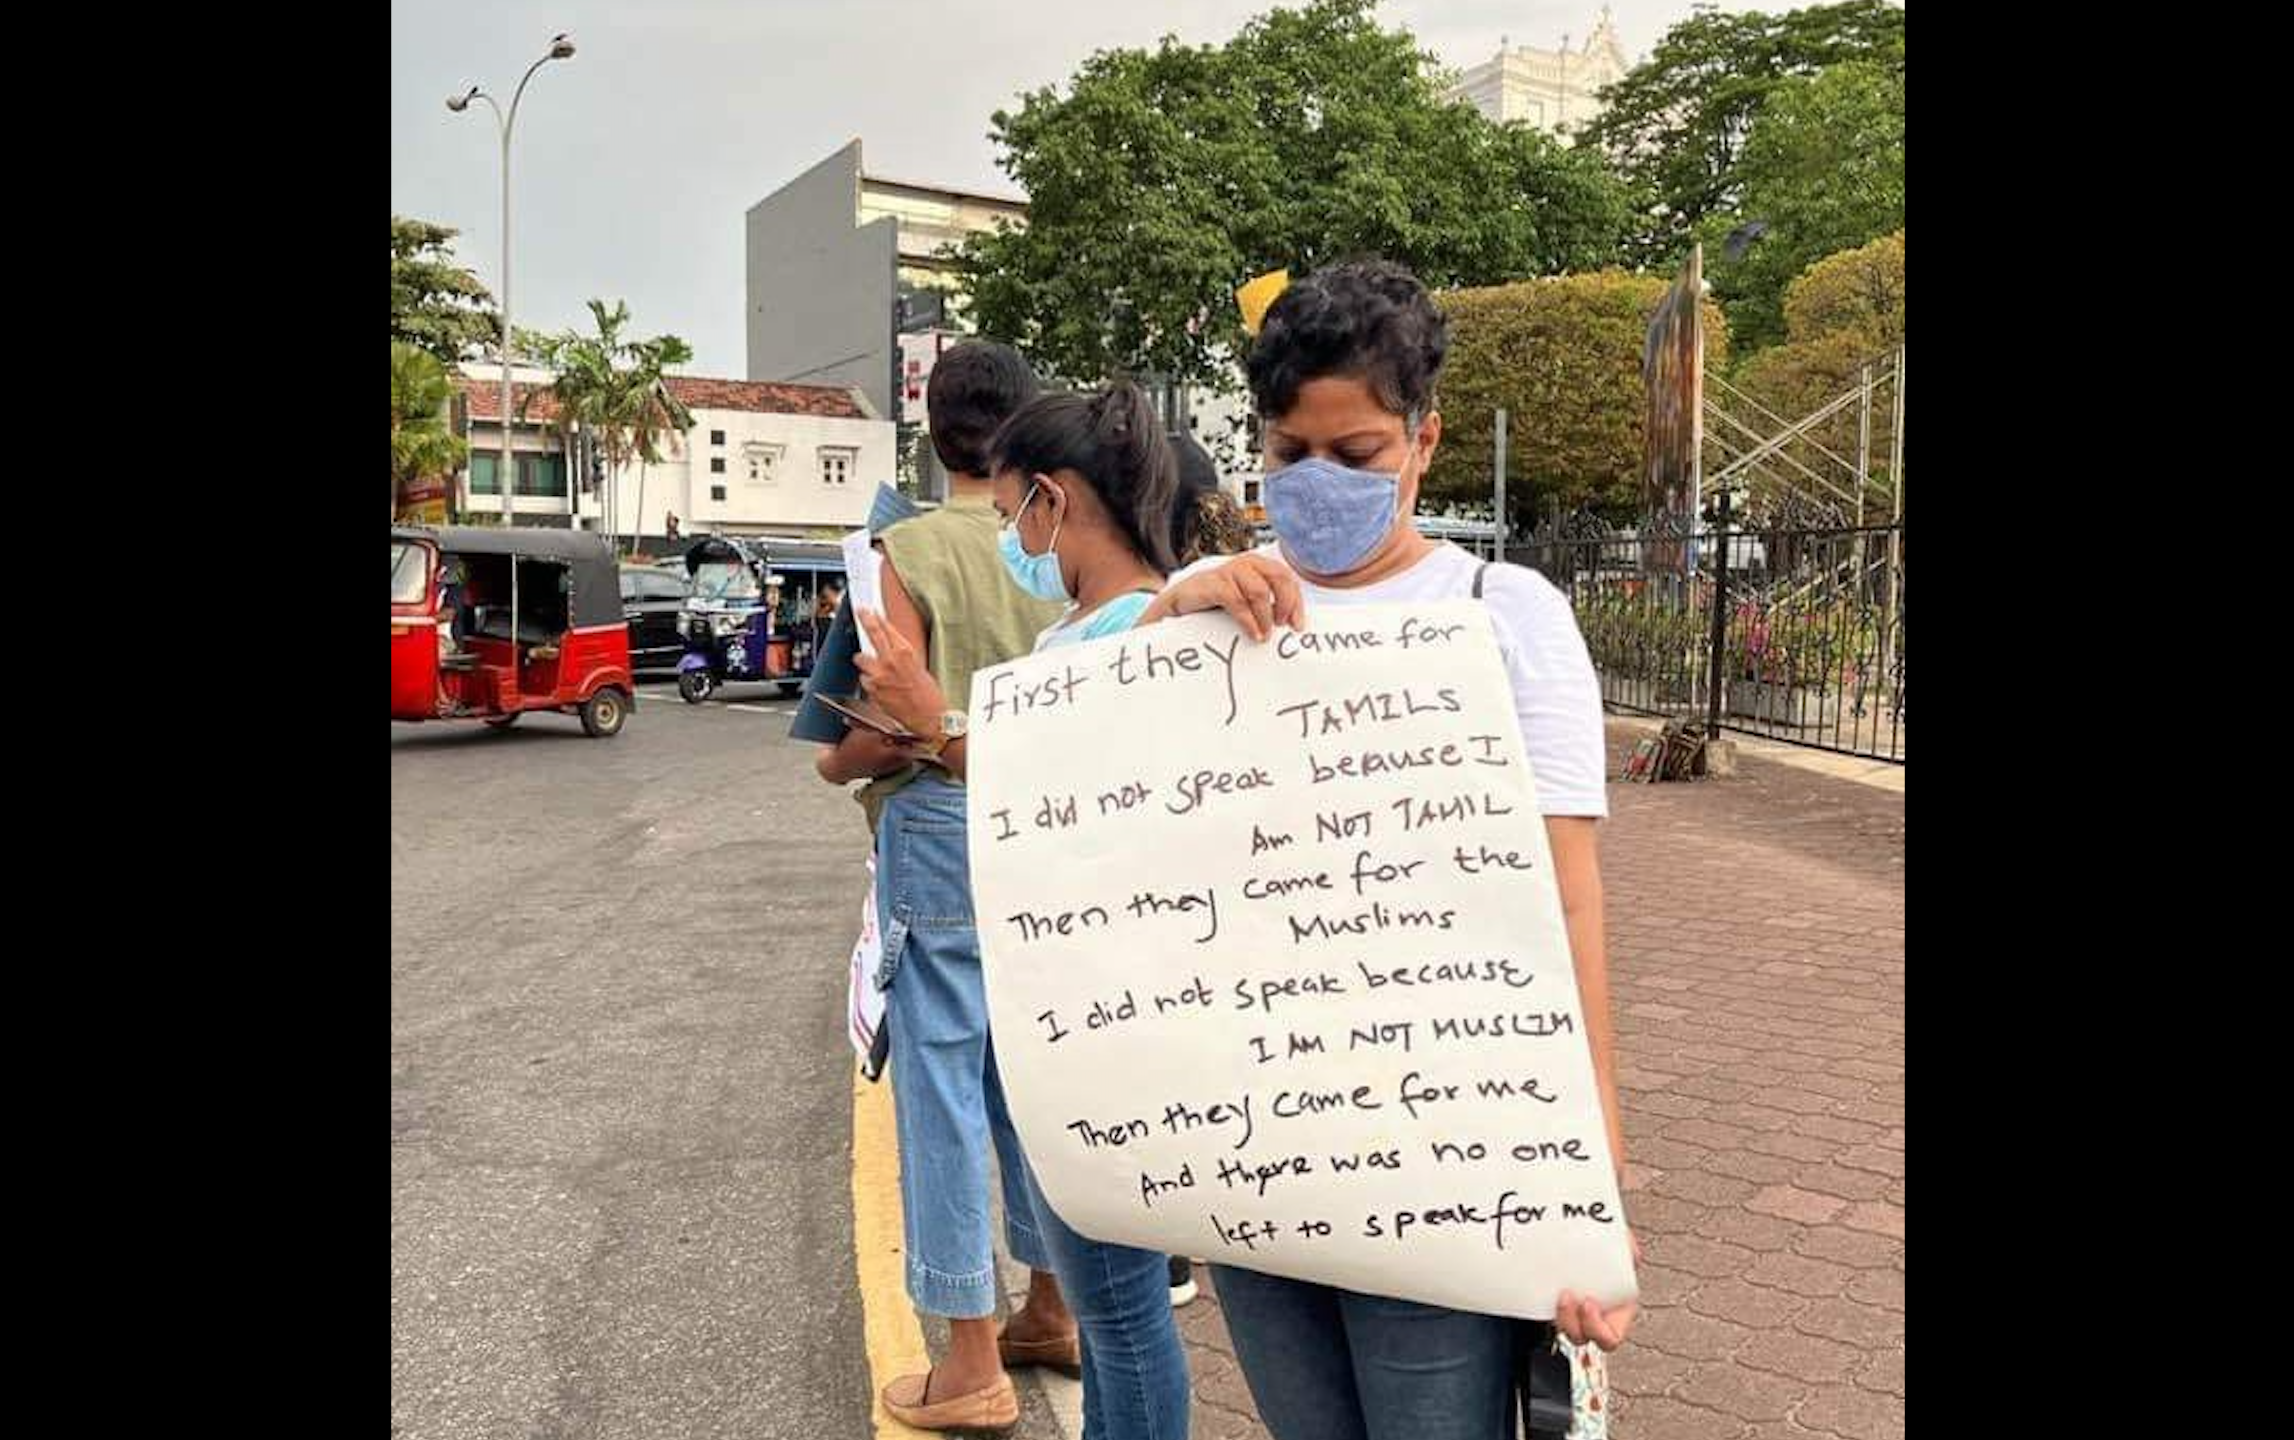 First they came for
TAMILS
I did not speak because I
Am NOT TAMIL
Then they came for the
Muslims
I did not speak because
I AM NOT MUSLIM
Then they came for me
And there was no one
left to speak for me